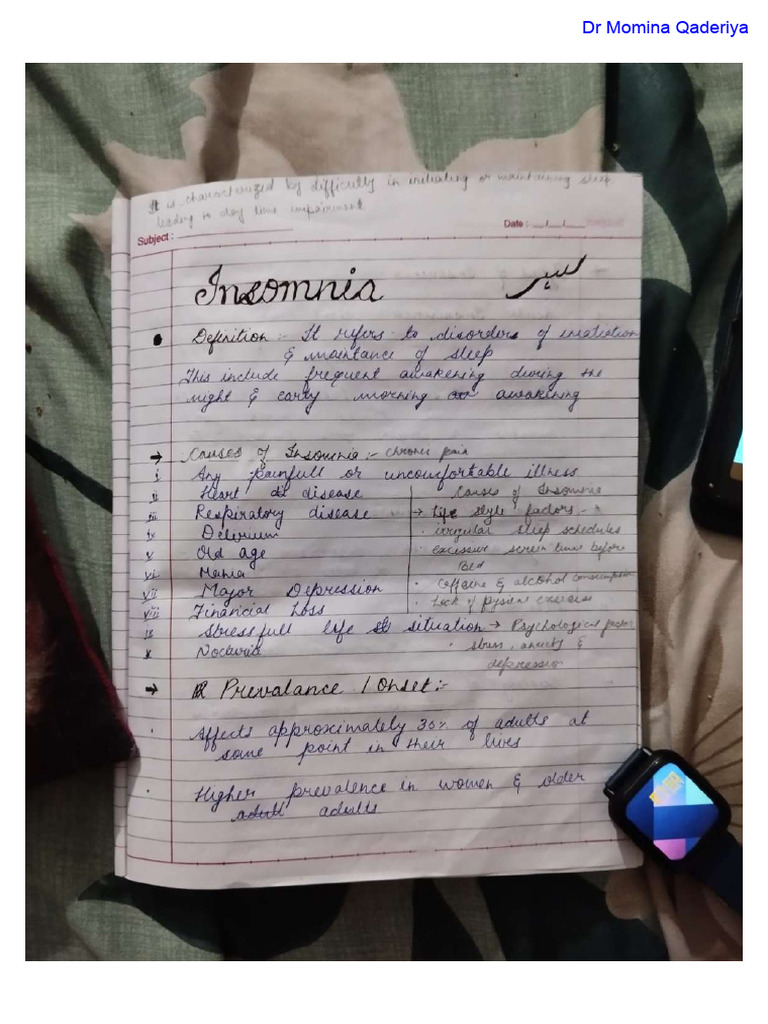 Dr Momina Qaderiya
It is characterized by difficulty in initiating or maintaining sleep
leading to day time impairment
Subject :
Date : __/__/__
Insomnia
Definition :- It refers to disorders of inatiation
& maintance of sleep
This include frequent awakening during the
night & early morning awakening
→ Causes of Insomnia :- chronic pain
i Any painfull or uncomfortable illness
ii Heart disease
iii Respiratory disease
iv Delirium
v Old age
vi Mania
vii Major Depression
viii Financial Loss
ix Stressfull life situation
x Nocturia
Causes of Insomnia
→ Life style factors :-
· irregular sleep schedules
· excessive screen time before
Bed
· Caffeine & alcohol consumption
· Lack of pysical exercise
→ Psychological factors
· stress, anxiety &
depression
→ Prevalance / Onset :-
· Affects approximately 30% of adults at
some point in their lives
· Higher prevalence in women & older
adults